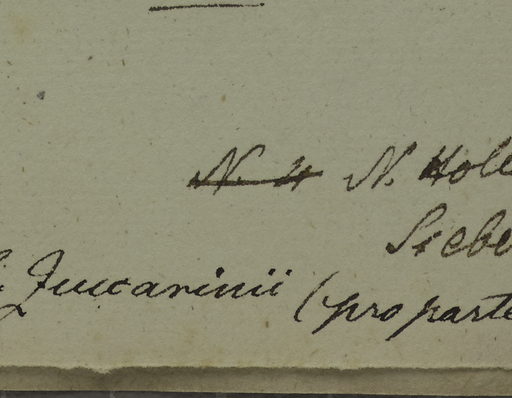 N. H N. Holl
Siebe
Zuccarinii (pro parte